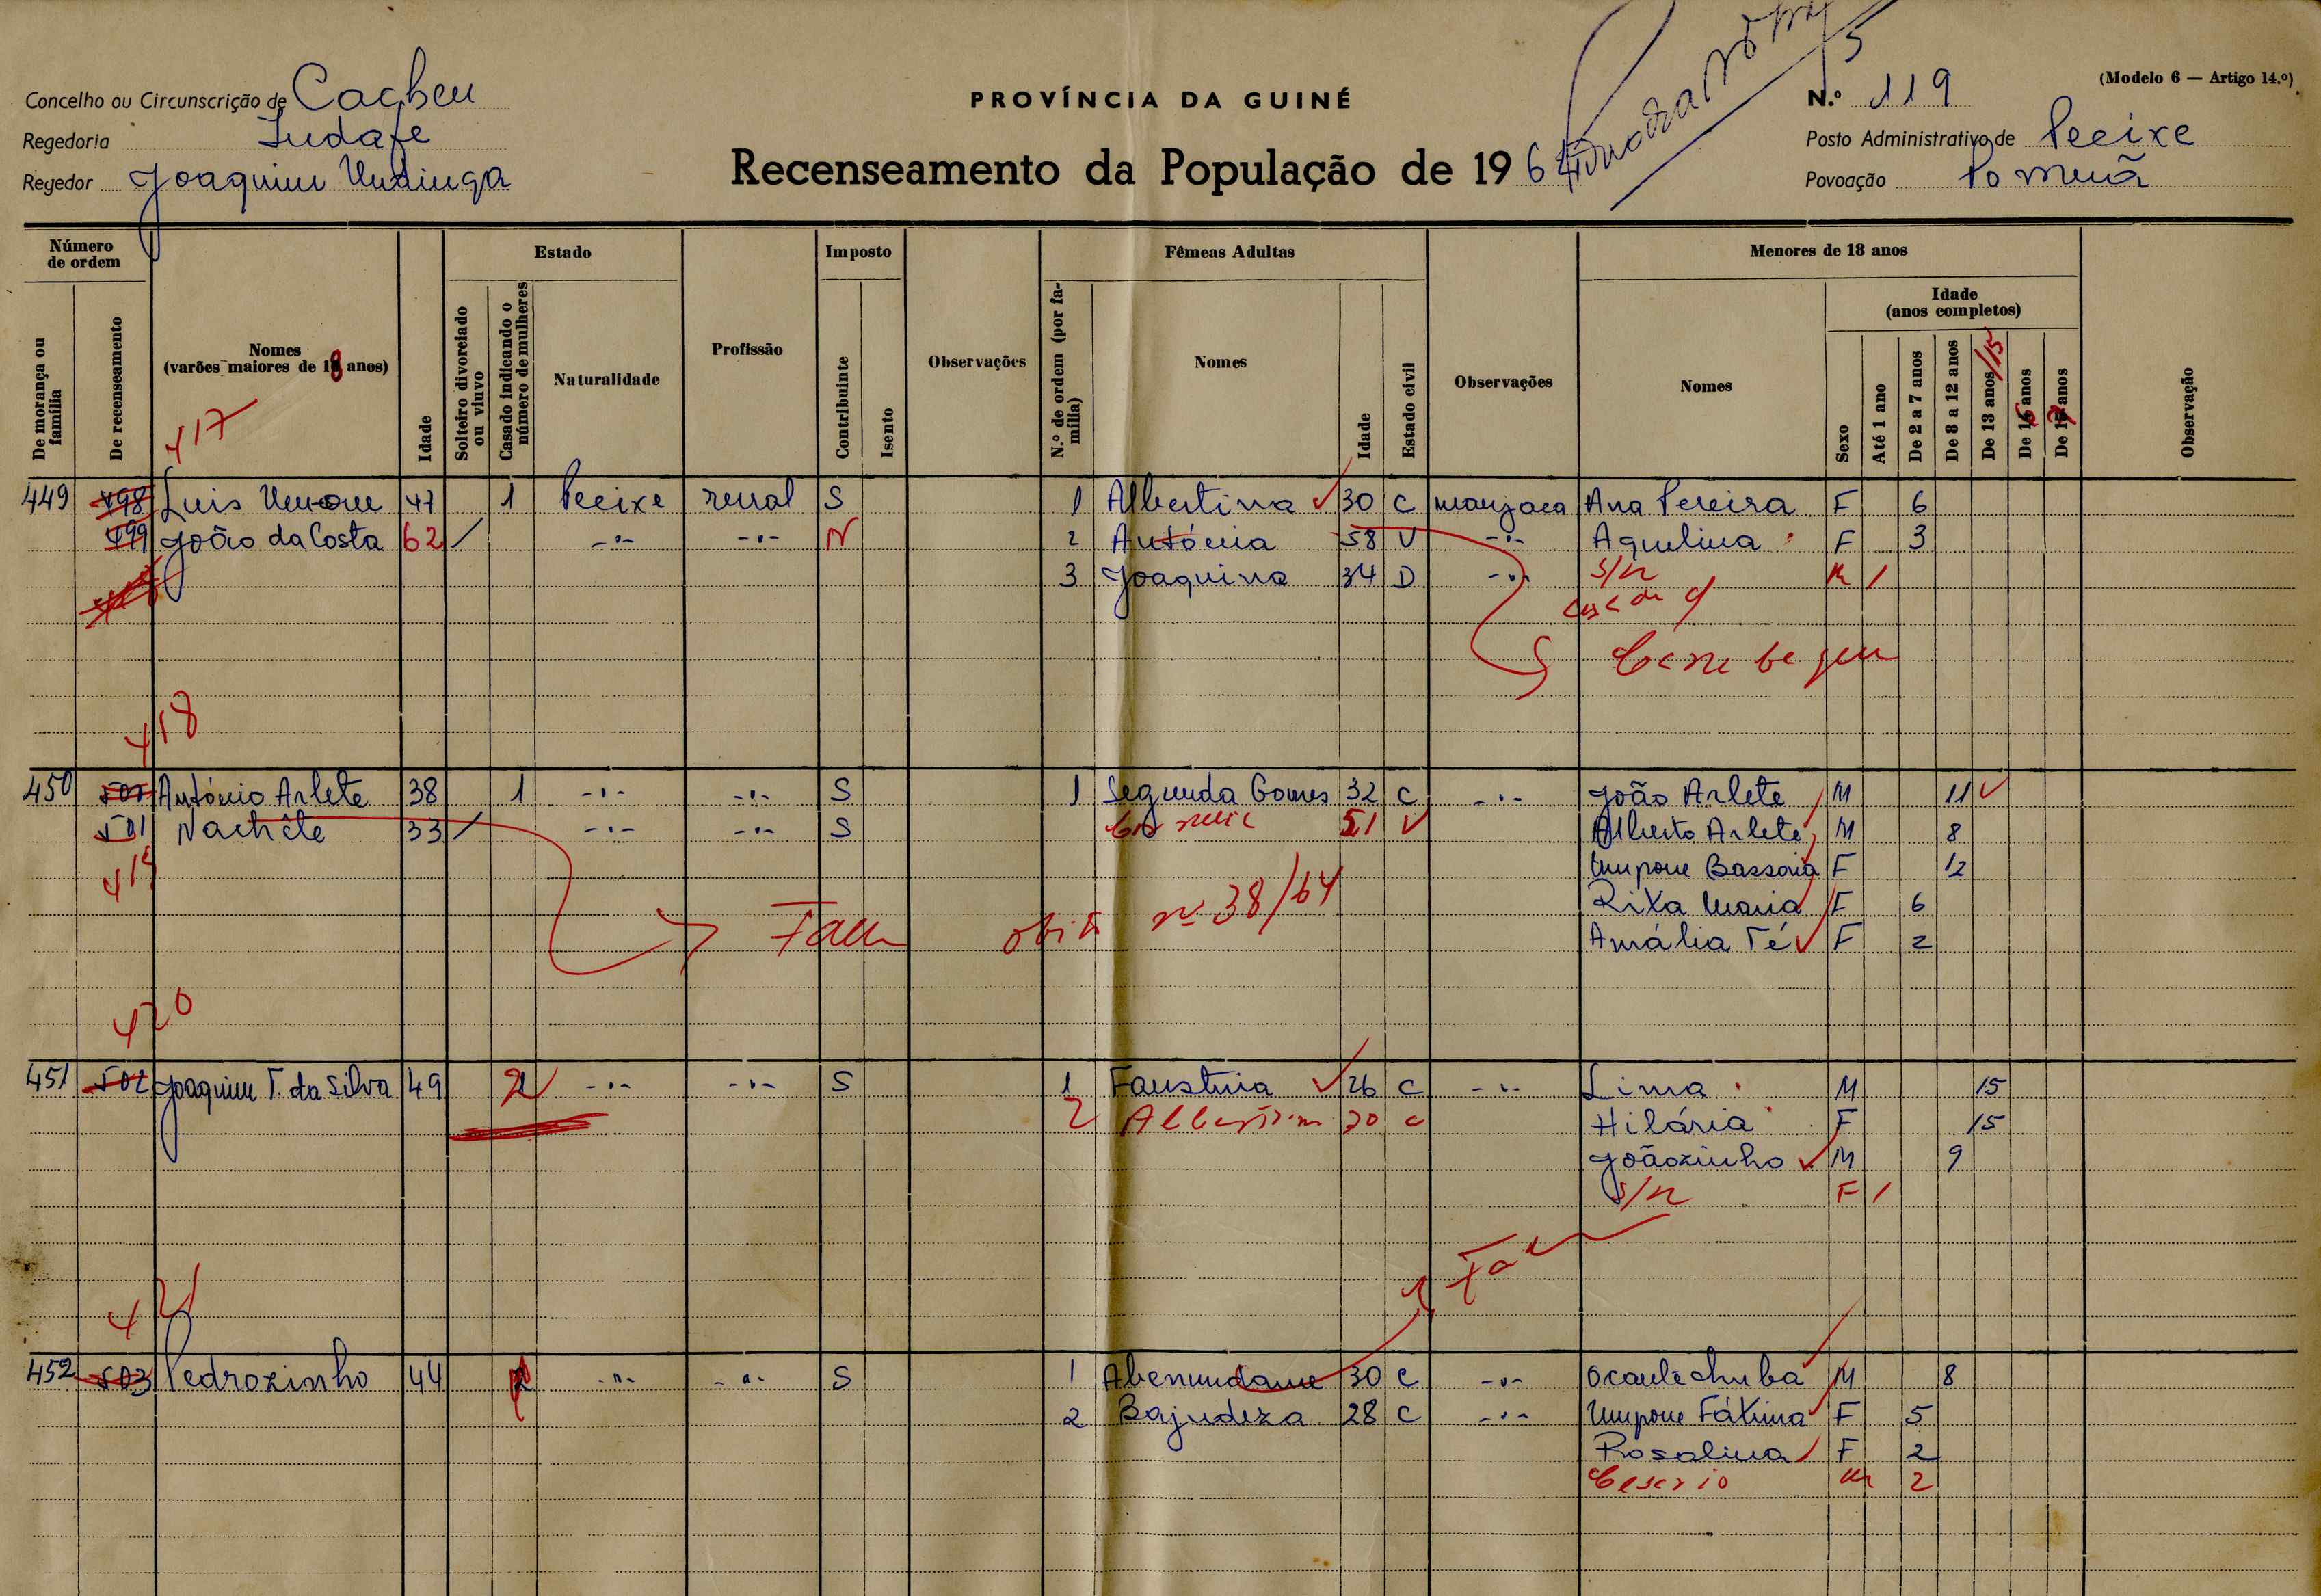 Concelho ou Circunscrição de Cacheu
Regedoria Judafe
Regedor Joaquim Undinga
PROVÍNCIA DA GUINÉ
Recenseamento da População de 196
N.º 119
(Modelo 6 — Artigo 14.º)
Posto Administrativo de Pecixe
Povoação
Número de ordem
De morança ou família
De recenseamento
Nomes (varões maiores de 18 anos)
Idade
Estado
Solteiro divorciado ou viuvo
Casado indicando o número de mulheres
Naturalidade
Profissão
Imposto
Contribuinte
Isento
Observações
Fêmeas Adultas
N.º de ordem (por família)
Nomes
Idade
Estado civil
Observações
Menores de 18 anos
Nomes
Idade (anos completos)
Sexo
Até 1 ano
De 2 a 7 anos
De 8 a 12 anos
De 13 anos /15
De 16 anos
De 17 anos
Observação
417
449 498 Luis 47 1 Pecixe rural S 1 Albertina 30 C manjaca Ana Pereira F 6
499 João da Costa 62 / -"- -"- N 2 António 58 V -"- Aquelina F 3
3 Joaquina 34 D -"- s/n M 1
418
450 500 António Arlete 38 1 -"- -"- S 1 Segunda Gomes 32 C -"- João Arlete M 11
501 Nachête 33 / -"- -"- S 51 V Alberto Arlete M 8
419
Umpone Bassoria F 12
Rita Maria F 6
Amália Té F 2
Fal obito nº 38/64
420
451 502 Joaquim T. da Silva 49 2 -"- -"- S 1 Faustina 26 C -"- Lima M 15
2 20 C Hilária F 15
Joãozinho M 9
s/n F 1
421
452 503 Pedrozinho 44 2 -"- -"- S 1 Abemundame 30 C -"- Ocante chuba M 8
2 Bajudeza 28 C -"- Umpone Fátima F 5
Rosalina F 2
M 2